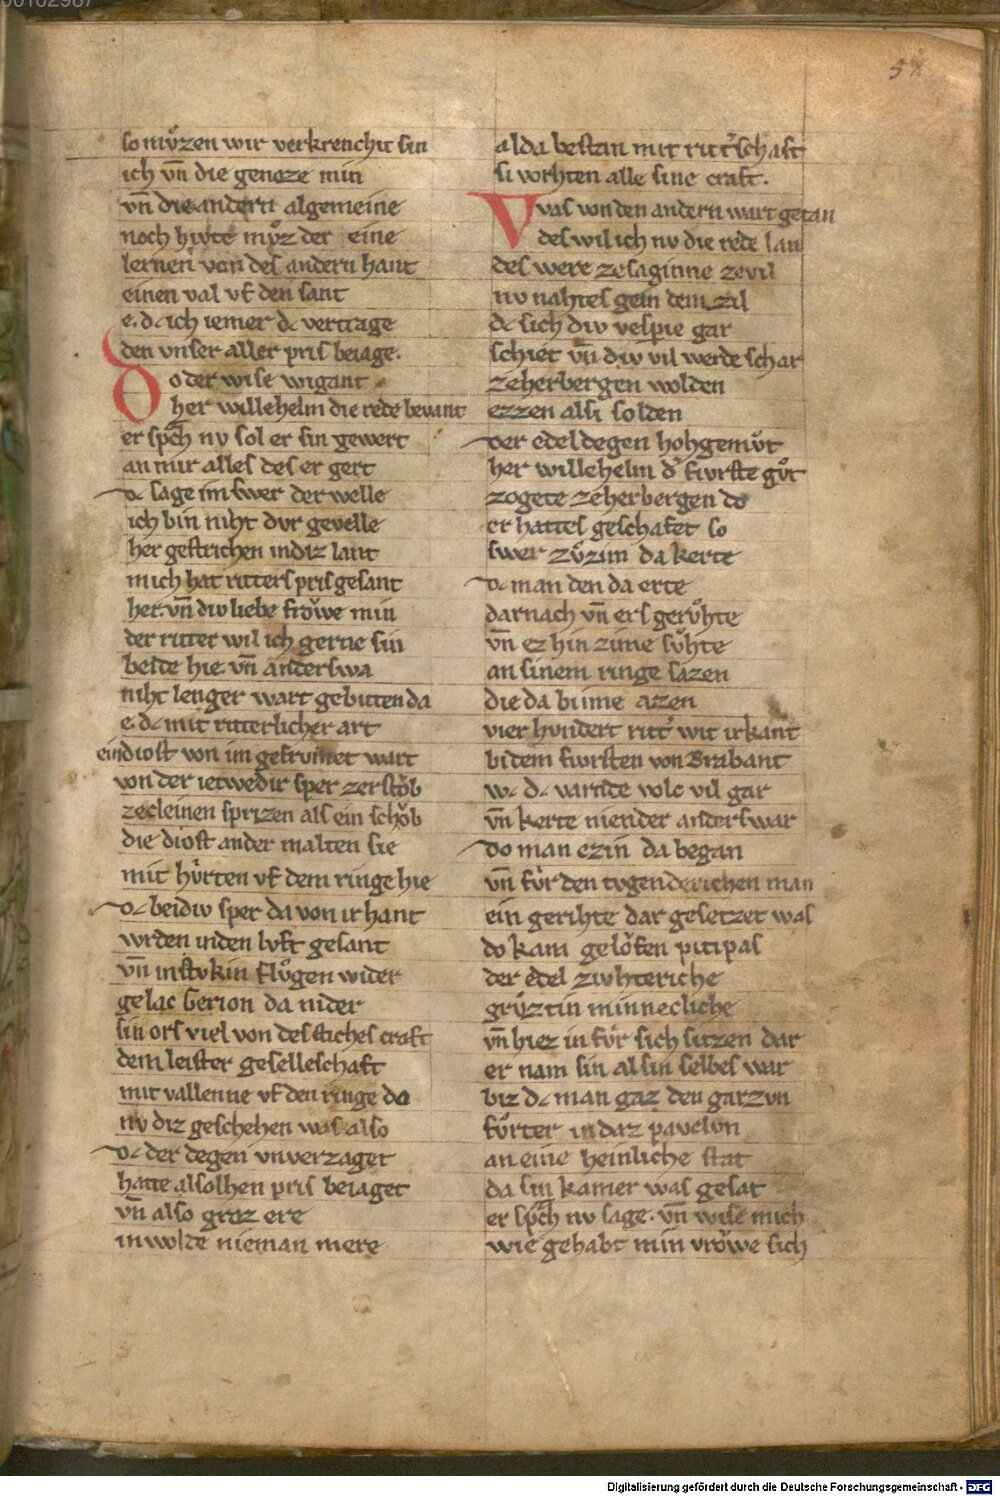 57
so mvͦzen wir verkrenchit sin
ich vn̄ die genoze min
vn̄ die andern algemeine
noch hivte mvͦz der eine
lernen von des andern hant
einen val vf den sant
e. dc ich iemer dc vertrage
den vnser aller pris beiage.
Do der wise wigant
her willehelm die rede bevant
er spch nv sol er sin gewert
an mir alles des er gert
vn̄ sage im swer der welle
ich bin niht dvr gevelle
her gestrichen indiz lant
mich hat ritters pris gesant
her. vn̄ div liebe froͮwe min
der ritter wil ich gerne sin
beide hie. vn̄ anderswa
niht lenger wart gebitten da
e. dc mit ritterlicher art
ein diost von im gefrumet wart
von der ietwedir sper zerstoͮb
zecleinen sprizen als ein schoͮb
die diost ander malten sie
mit hvrten vf dem ringe hie
dc beidiv sper da von ir hant
wrden inden lvft gesant
vn̄ in stvkin flvͦgen wider
gelac Gerion da nider
sin ors viel von des stiches craft
dem leister geselleschaft
mit vallenne vf den ringe do
nv diz geschehen was also
dc der degen vnverzaget
hatte alsolhen pris beiaget
vn̄ also groz ere
in wolde nieman mere
alda bestan mit ritt'schaft
si worhten alle sine craft.
Vvas von den andern wart getan
des wil ich nv die rede lan
des were zesaginne zevil
nv nahtes gein dem zil
dc sich div vesprie gar
schiet vn̄ div vil werde schar
zeherbergen wolden
ezzen alsi solden
der edel degen hohgemvͦt
her willehelm d' fvrste gvͦt
zogete zeherbergen do
er hattes geschafet so
swer zvͦzim da kerte
dc man den da erte
darnach vn̄ ers gervͦhte
vn̄ ez hin zime svͦhte
an sinem ringe sazen
die da bi ime azen
vier hvndert ritt' wit irkant
bi dem fvrsten von Brabant
wc dc varnde volc vil gar
vn̄ kerte niender anderswar
do man ezin da began
vn̄ fvr den tvgenderichen man
ein gerihte dar gesetzet was
do kam geloͮfen pitipas
der edel zvhteriche
grvͦztin minnecliche
vn̄ hiez in fvr sich sitzen dar
er nam sin al sin selbes war
biz dc man gaz den garzvn
fvͦrter in daz pavelvn
an eine heinliche stat
da sin kamer was gesat
er spch nv sage. vn̄ wise mich
wie gehabt min vroͮwe sich
Digitalisierung gefördert durch die Deutsche Forschungsgemeinschaft - DFG